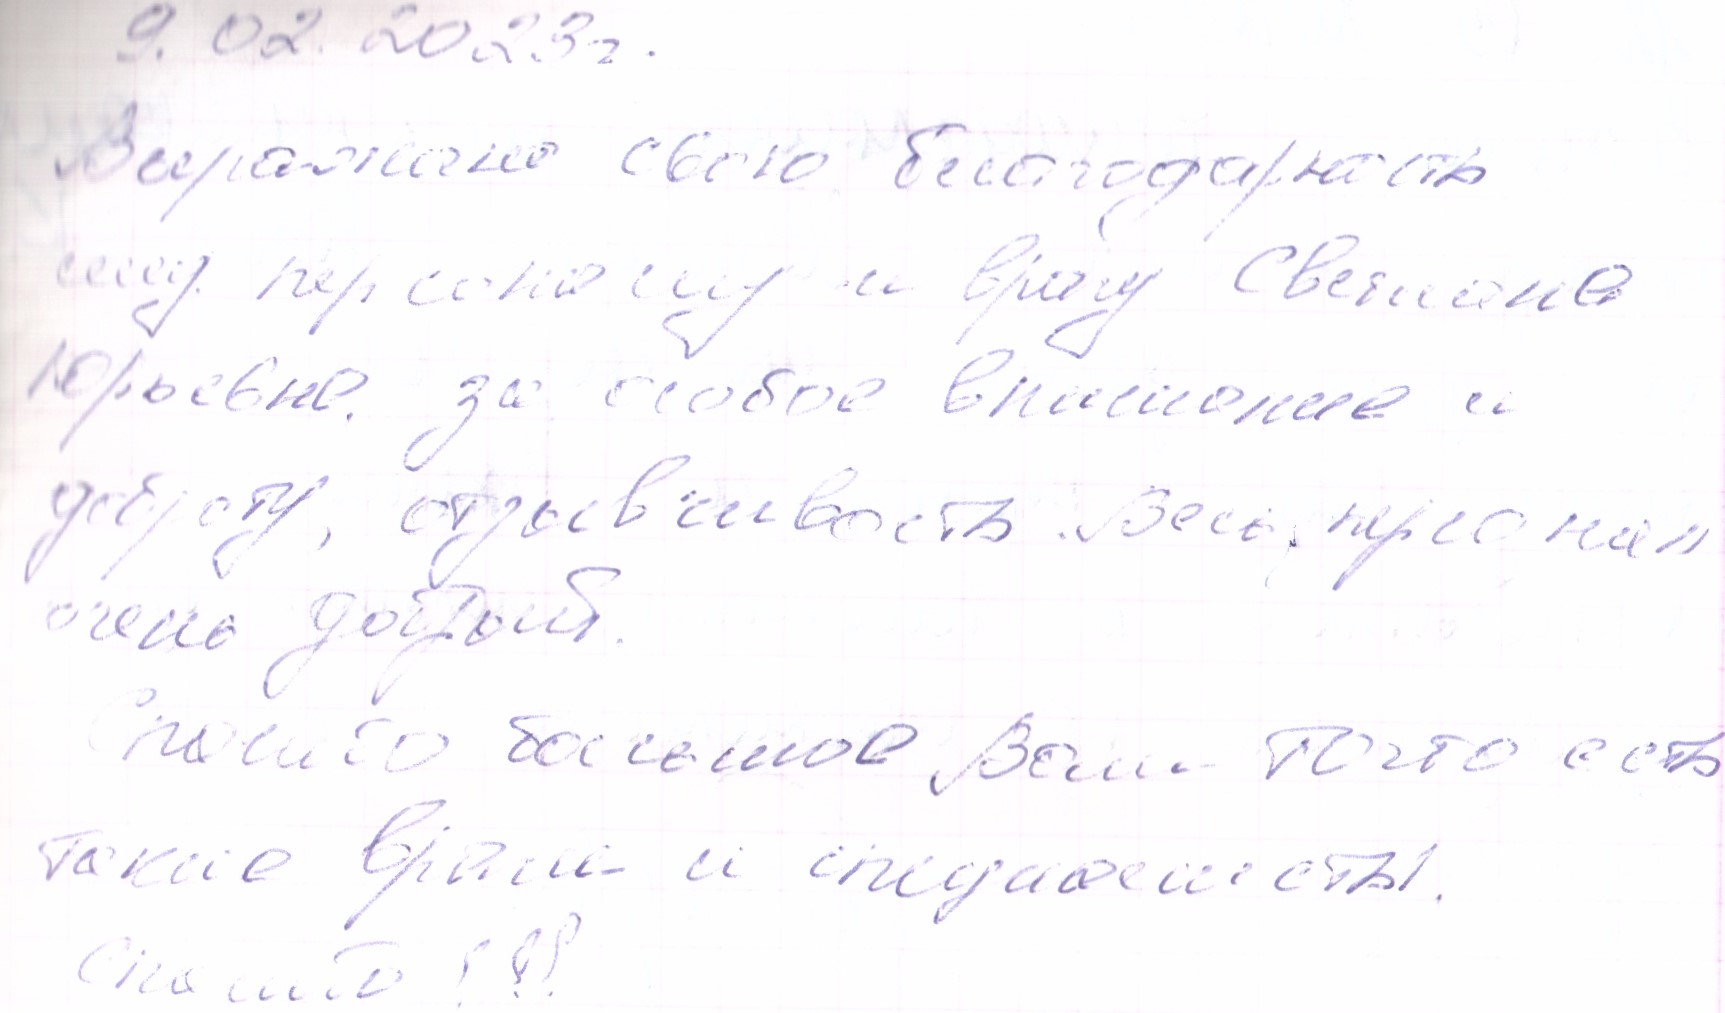 9.02.2023г.
Выражаю свою благодарность
мед. персоналу и врачу Светлане
Юрьевне за особое внимание и
доброту, отзывчивость. Весь персонал
очень добрый.
Спасибо большое Вам что есть
такие врачи и специалисты.
Спасибо!!!